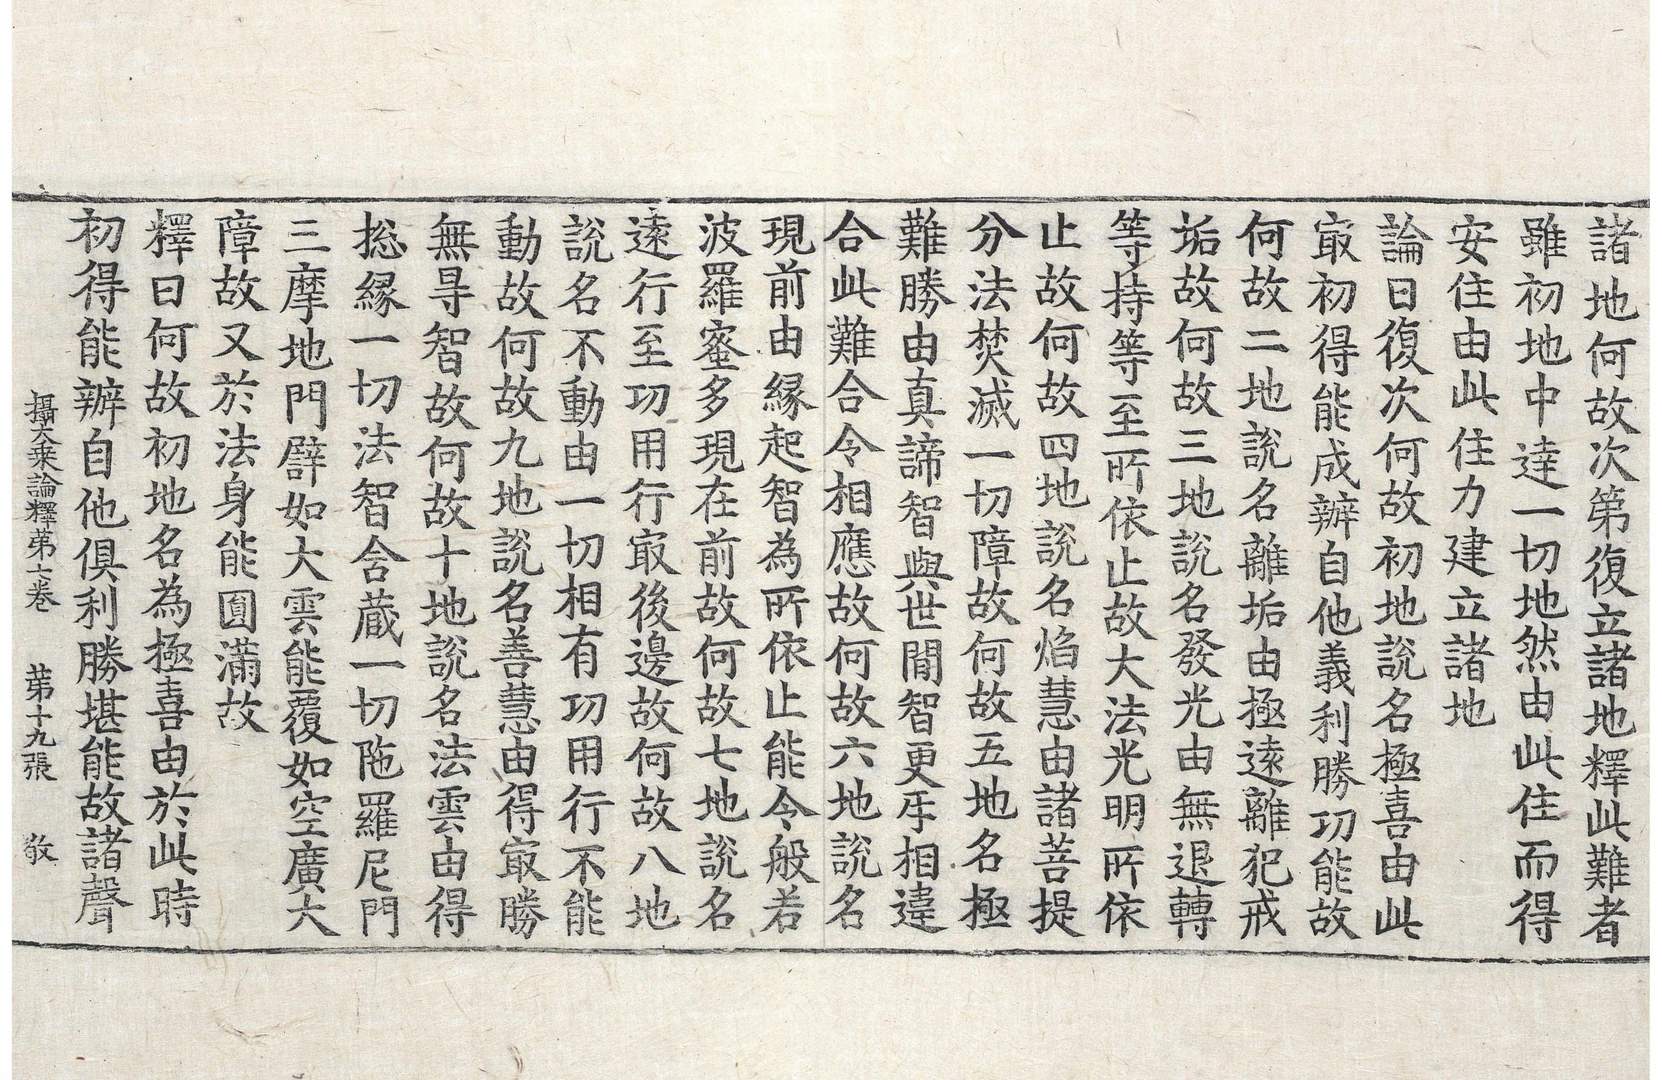 諸地何故次第復立諸地釋此難者
雖初地中達一切地然由此住而得
安住由此住力建立諸地
論曰復次何故初地說名極喜由此
㝡初得能成辦自他義利勝功能故
何故二地說名離垢由極遠離犯戒
垢故何故三地說名發光由無退轉
等持等至所依止故大法光明所依
止故何故四地說名焰慧由諸菩提
分法焚滅一切障故何故五地名極
難勝由真諦智與世間智更㸦相違
合此難合令相應故何故六地說名
現前由緣起智為所依止能令般若
波羅蜜多現在前故何故七地說名
遠行至功用行㝡後邊故何故八地
說名不動由一切相有功用行不能
動故何故九地說名善慧由得㝡勝
無㝵智故何故十地說名法雲由得
揔緣一切法智含蔵一切陁羅尼門
三摩地門譬如大雲能覆如空廣大
障故又於法身能圎滿故
釋曰何故初地名為極喜由於此時
初得能辦自他俱利勝堪能故諸聲
攝大乘論釋苐七卷 苐十九張 敬